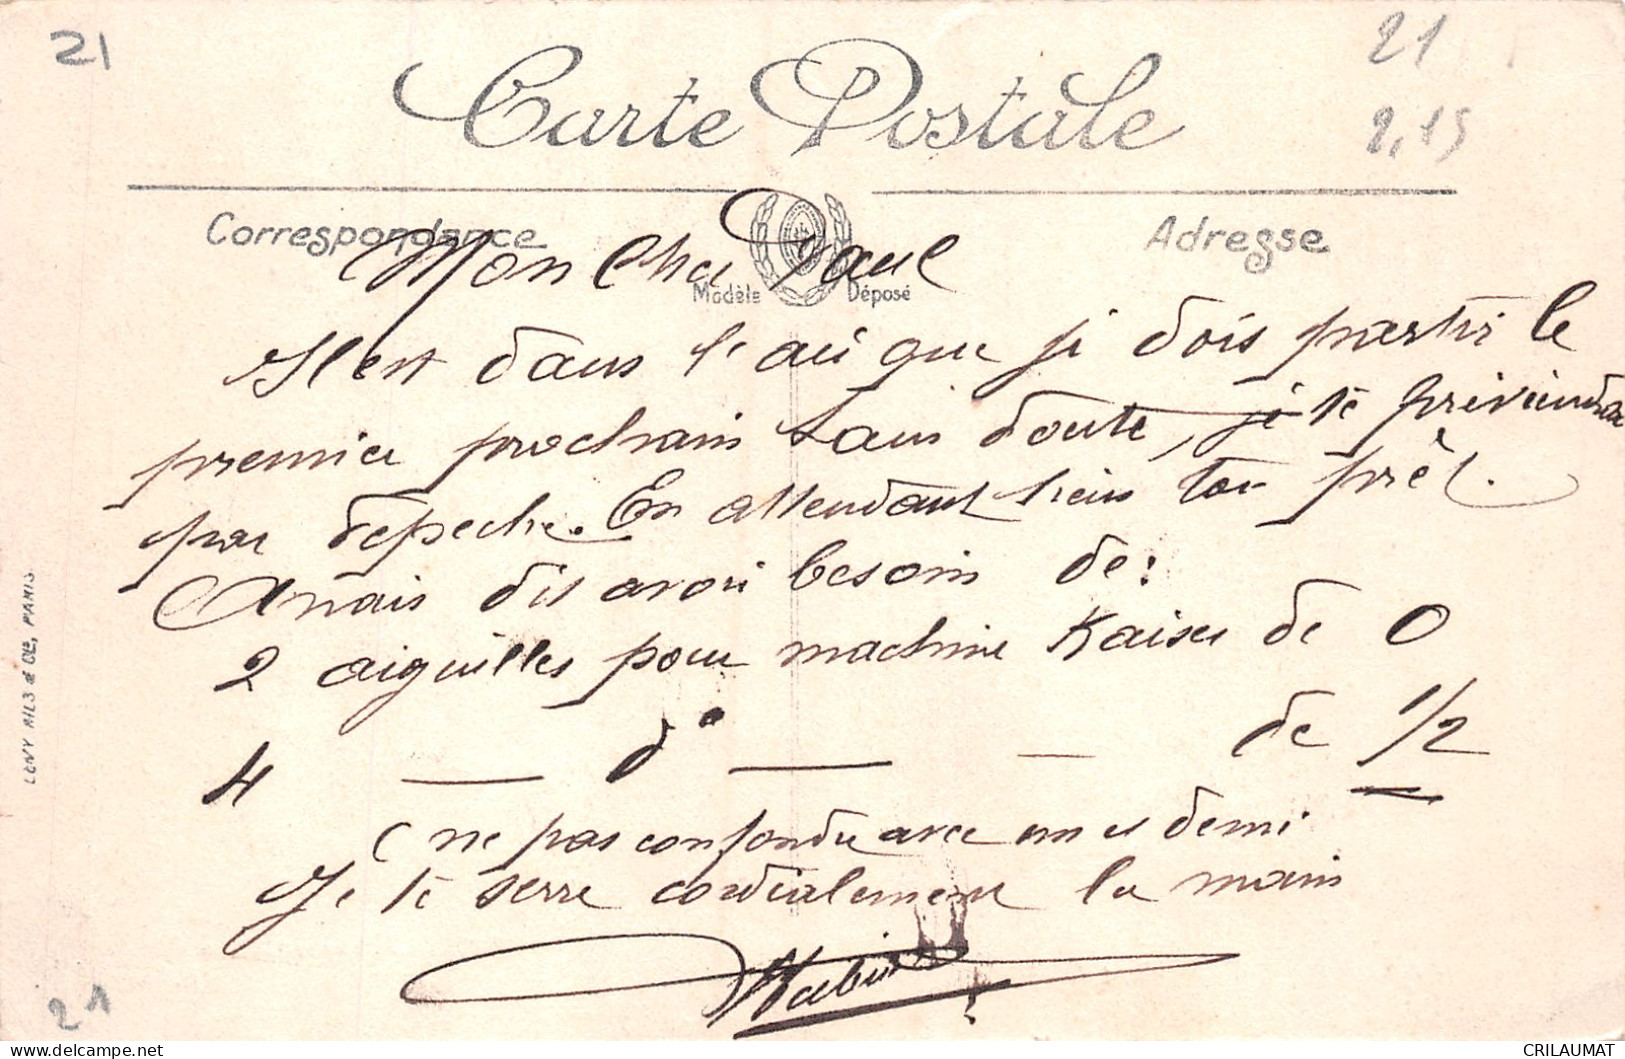 21
21
2,15
Carte Postale
Correspondance
Adresse
Modèle Déposé
Mon Cher Paul
Il est dans l'air que je dois partir le
premier prochain sans doute, je te préviendrai
par dépêche. En attendant tiens toi prêt.
Anais dit avoir besoin de:
2 aiguilles pour machine Kaiser de 0
4 — d° — — de 1/2
( ne pas confondre avec un et demi
Je te serre cordialement la main
LEVY FILS & CIE, PARIS
21
CRILAUMAT